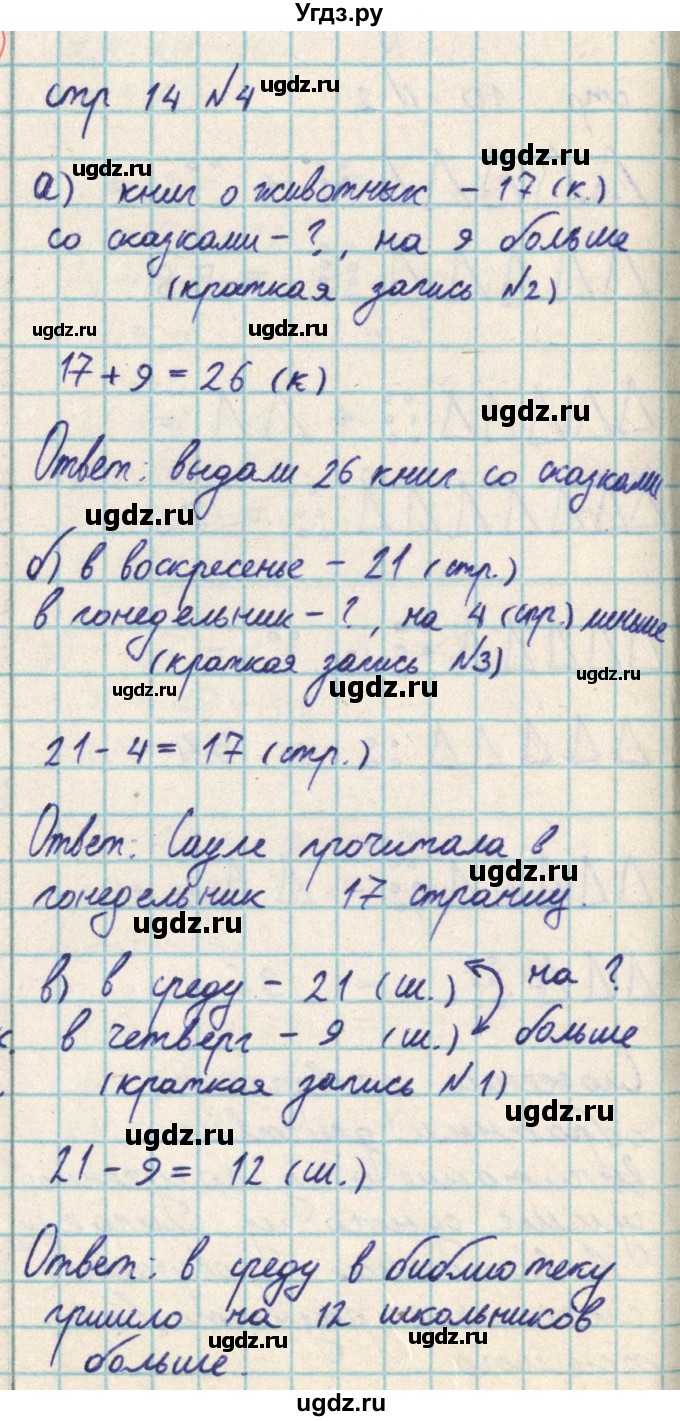 Угдз.ру
стр 14 №4
ugdz.ru
ugdz.ru
ugdz.ru
а) книг о животных - 17 (к.)
со сказками - ?, на 9 больше
(краткая запись №2)
ugdz.ru
ugdz.ru
17 + 9 = 26 (к)
ugdz.ru
Ответ: выдали 26 книг со сказками
ugdz.ru
б) в воскресенье - 21 (стр.)
в понедельник - ?, на 4 (стр.) меньше
(краткая запись №3)
ugdz.ru
ugdz.ru
ugdz.ru
21 - 4 = 17 (стр.)
Ответ: Сауле прочитала в
ugdz.ru
понедельник 17 страниц.
ugdz.ru
в) в среду - 21 (ш.) на ?
в четверг - 9 (ш.) больше
(краткая запись №1)
ugdz.ru
ugdz.ru
21 - 9 = 12 (ш.)
Ответ: в среду в библиотеку
пришло на 12 школьников
ugdz.ru
ugdz.ru
больше.
ugdz.ru